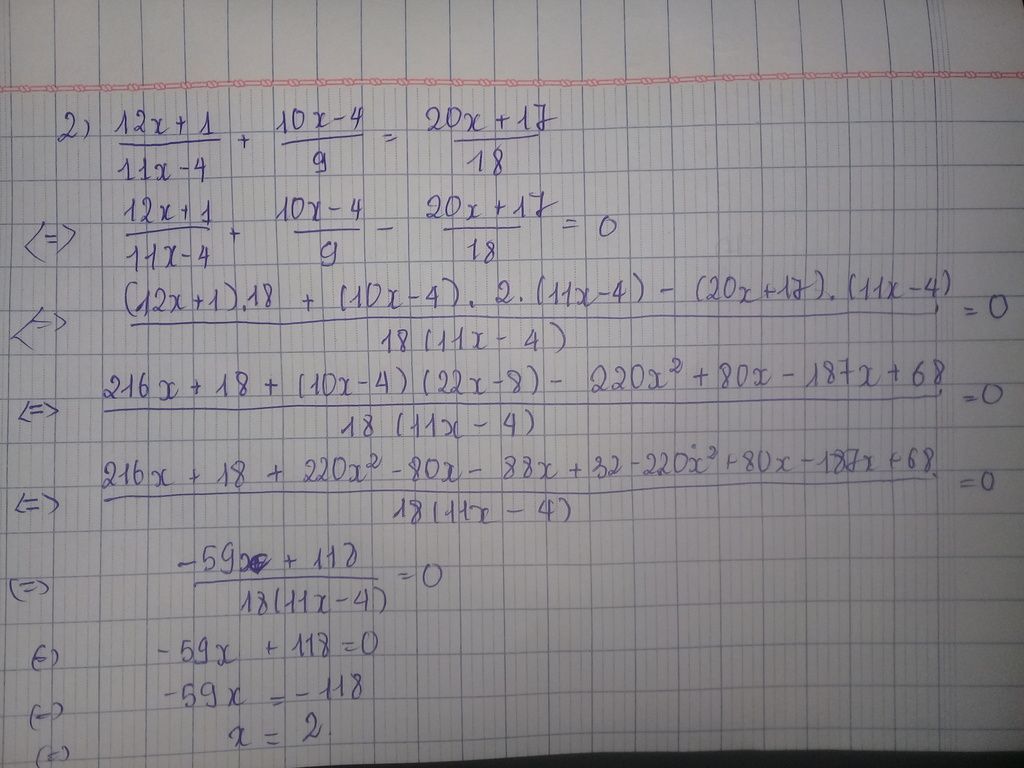 2) (12x+1)/(11x-4) + (10x-4)/9 = (20x+17)/18
<=> (12x+1)/(11x-4) + (10x-4)/9 - (20x+17)/18 = 0
<=> ((12x+1).18 + (10x-4). 2. (11x-4) - (20x+17). (11x-4))/(18(11x-4)) = 0
<=> (216x + 18 + (10x-4)(22x-8) - 220x² + 80x - 187x + 68)/(18(11x-4)) = 0
<=> (216x + 18 + 220x² - 80x - 88x + 32 - 220x² + 80x - 187x + 68)/(18(11x-4)) = 0
(=) (-59x + 118)/(18(11x-4)) = 0
(=) -59x + 118 = 0
(=) -59x = -118
(=) x = 2